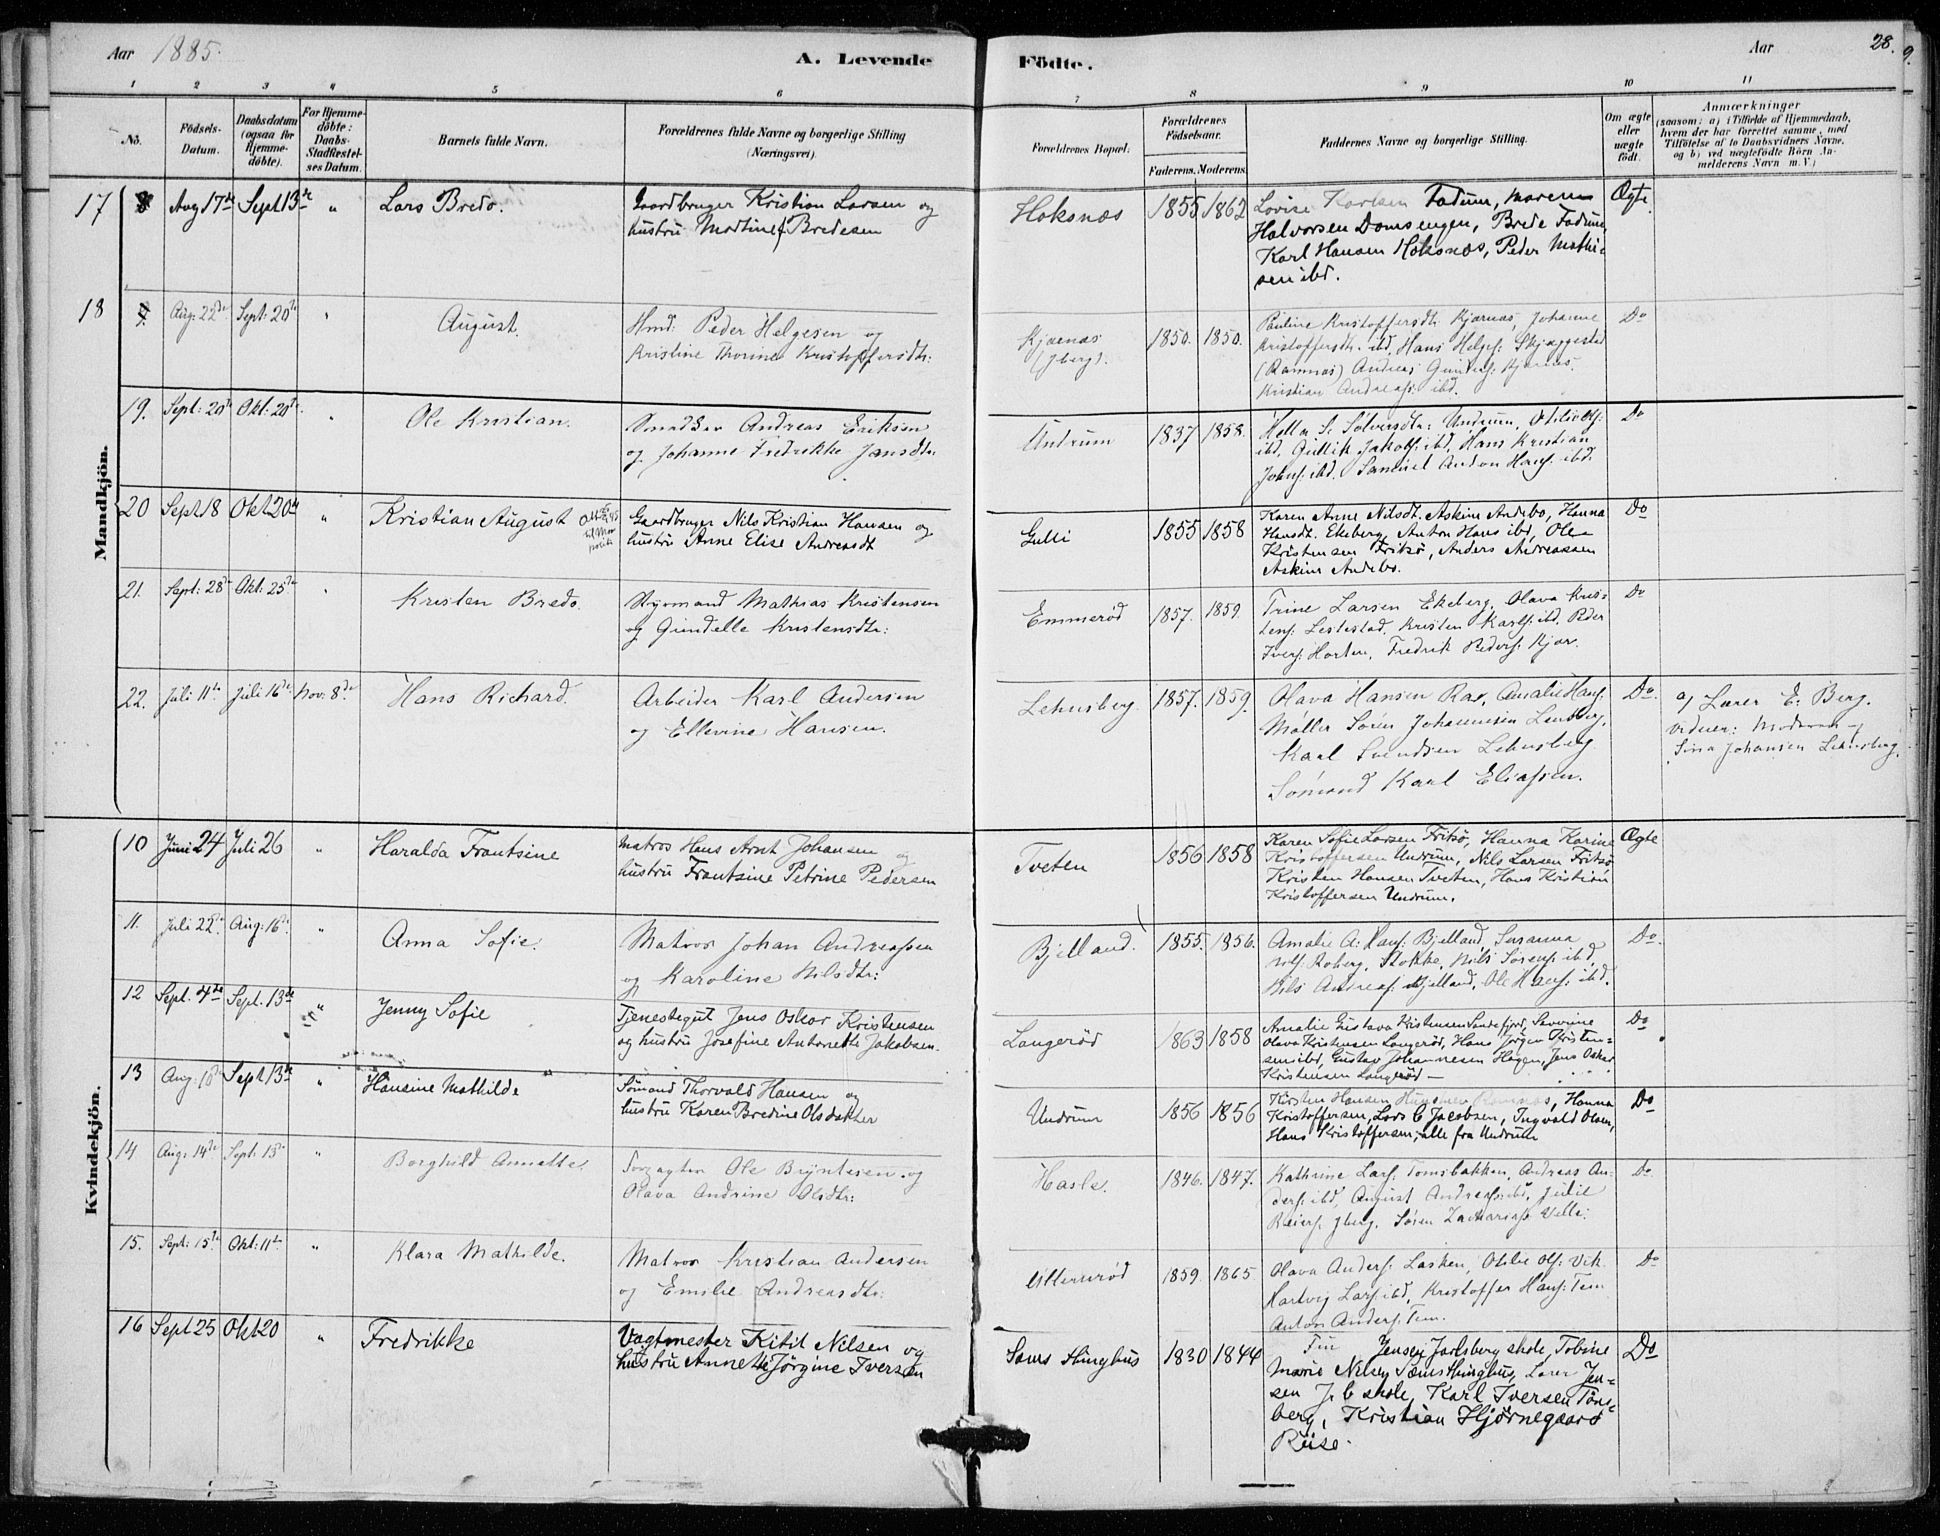 Aar 1885.
A. Levende
Födte.
Aar
28.
1 2 3 4 5 6 7 8 9 10 11
No.
Födsels-Datum.
Daabsdatum (ogsaa for Hjemme-döbte).
For Hjemme-döbte: Daabs-Stadfæstel-ses Datum.
Barnets fulde Navn.
Forældrenes fulde Navne og borgerlige Stilling (Næringsvei).
Forældrenes Bopæl.
Forældrenes Födselsaar.
Faderens. Moderens.
Faddernes Navne og borgerlige Stilling.
Om ægte eller uægte födt.
Anmærkninger
(saasom: a) i Tilfælde af Hjemmedaab, hvem der har forrettet samme, med Tilföielse af to Daabsvidners Navne, og b) ved uægtefödte Börn Anmelderens Navn m. V.)
Mandkjön.
17 Aug 17de Sept 13de " Lars Bredo. Gaardbruger Kristian Larsen og
hustru Martine Bredesen
Hoksnæs 1855 1862 Lovise Karlsen Fadum, Maren
Halvorsen Damsengen, Brede Fadum,
Karl Hansen Hoksnæs, Peder Mathi-
sen ibd.
Ægte
18 Aug: 22de Sept: 20de " August. Hmd: Peder Helgesen og
Kristine Thorine Kristoffersdtr:
Kjærnæs
(Jberg). 1850. 1850. Pauline Kristoffersdtr. Kjærnæs, Johanne
Kristoffersdtr. ibd, Hans Helges: Skjeggestad
(Ramnæs) Andreas Gunders: Kjærnæs.
Kristian Andreass: ibd.
Do
19. Sept: 20de Okt: 20de " Ole Kristian. Snedker Andreas Eriksen
og Johanne Fredrikke Jansdtr:
Undrum 1837 1858. Helle S. Sølversdtr: Undrum,
ibd, Gullik Jakobs: ibd, Hans Kristian
Johns: ibd. Samuel Anton Hans: ibd.
Do
20 Sept 18 Okt 20de " Kristian August Gaardbruger Nils Kristian Hansen og
hustru Anne Elise Andreasdt
Gulli 1855 1858 Karen Anne Nilsdt. Askim Andebo, Hanna
Hansdt. Ekeberg, Anton Hans ibd, Ole
Kristensen Friksø, Anders Andreassen
Askim Andebo.
Do
21. Sept: 28de Okt: 25de " Kristen Bredo. Styrmand Mathias Kristensen
og Gundelle Kristensdtr:
Emmerød 1857. 1859. Trine Larsen Ekeberg, Olava Kris-
tens: Lestestad, Kristen Karls: ibd. Peder
Ivers: Horten, Fredrik Peders: Kjær.
Do
22. Juli 11te Juli 16de Nov: 8de Hans Richard. Arbeider Karl Andersen
og Ellevine Hansen.
Lehnsberg 1857. 1859. Olava Hansen Ras, Amalie Hans:
Møller Søren Johannesen Landberg,
Karl Svendsen Lehnsberg
Sømand Karl Eliassen.
Do. a/ Lærer E. Berg.
Vidner: Moderen og
Sina Johansen Lehnsberg.
Kvindekjön.
10 Juni 24 Juli 26 " Haralda Frantsine Matros Hans Arnt Johansen og
hustru Frantsine Petrine Pedersen
Tveten 1856 1858 Karen Sofie Larsen Friksø, Hanna Karine
Kristoffersen Undrum, Nils Larsen Friksø
Kristen Hansen Tveten, Hans Kristian
Kristoffersen Undrum.
Ægte
11. Juli 22de Aug: 16de " Anna Sofie. Matros Johan Andreassen
og Karoline Nilsdtr:
Bjelland. 1855. 1856. Amalie A: Hans: Bjelland, Susanna
Nils: Roberg, Stokke, Nils Sørens: ibd,
Nils Andreas: Bjelland, Ole Hans: ibd.
Do.
12 Sept. 4de Sept. 13de " Jenny Sofie Tjenestegut Jens Oskar Kristensen
og hustru Josefine Antonette Jakobsen.
Langerød 1863 1858 Amalie Gustava Kristensen Sandefjord, Severine
Olava Kristensen Langerød, Hans Jørgen Kristen-
sen ibd, Gustav Johannesen Hagen, Jens Oskar
Kristensen Langerød —
Do
13 Aug: 18de Sept 13de " Hansine Mathilde Sømand Thorvald Hansen og
hustru Karen Bredine Olsdatter
Undrum 1856 1856 Kirsten Hansen Ramnæs, Hanna
Kristoffersen, Lars C Jacobsen, Ingvald Olsen,
Hans Kristoffersen, alle fra Undrum
Do
14 Aug: 14de Sept: 13de " Borghild Annette. Ole Bryntesen og
Olava Andrine Olsdtr:
Hasle. 1846. 1847. Kathrine Lars: Tomsbakken, Andreas An-
ders: ibd, August Andreas: ibd, Julie
Reiers: Jberg. Søren Zacharias: Velle.
Do.
15. Sept: 15de Okt: 11te " Klara Mathilde. Matros Kristian Andersen
og Emilie Andreasdtr:
1859. 1865 Olava Anders: Lasken, Otilie Ols: Vik
Hartvig Lars: ibd, Kristoffer Hans: Tem
Anton Anders: Tem.
Do
16 Sept 25 Okt 20 " Fredrikke Vagtmester Kitil Nilsen og
hustru Annette Jørgine Iversen
Sæms Thinghus 1830 1844 Fru Jensen Jarlsberg skole, Tobine
Marie Nilsen Sæms Thinghus, Lærer Jen-
sen J. b skole, Karl Iversen Tøns-
berg, Kristian Hjørnegaard
Reise.
Do